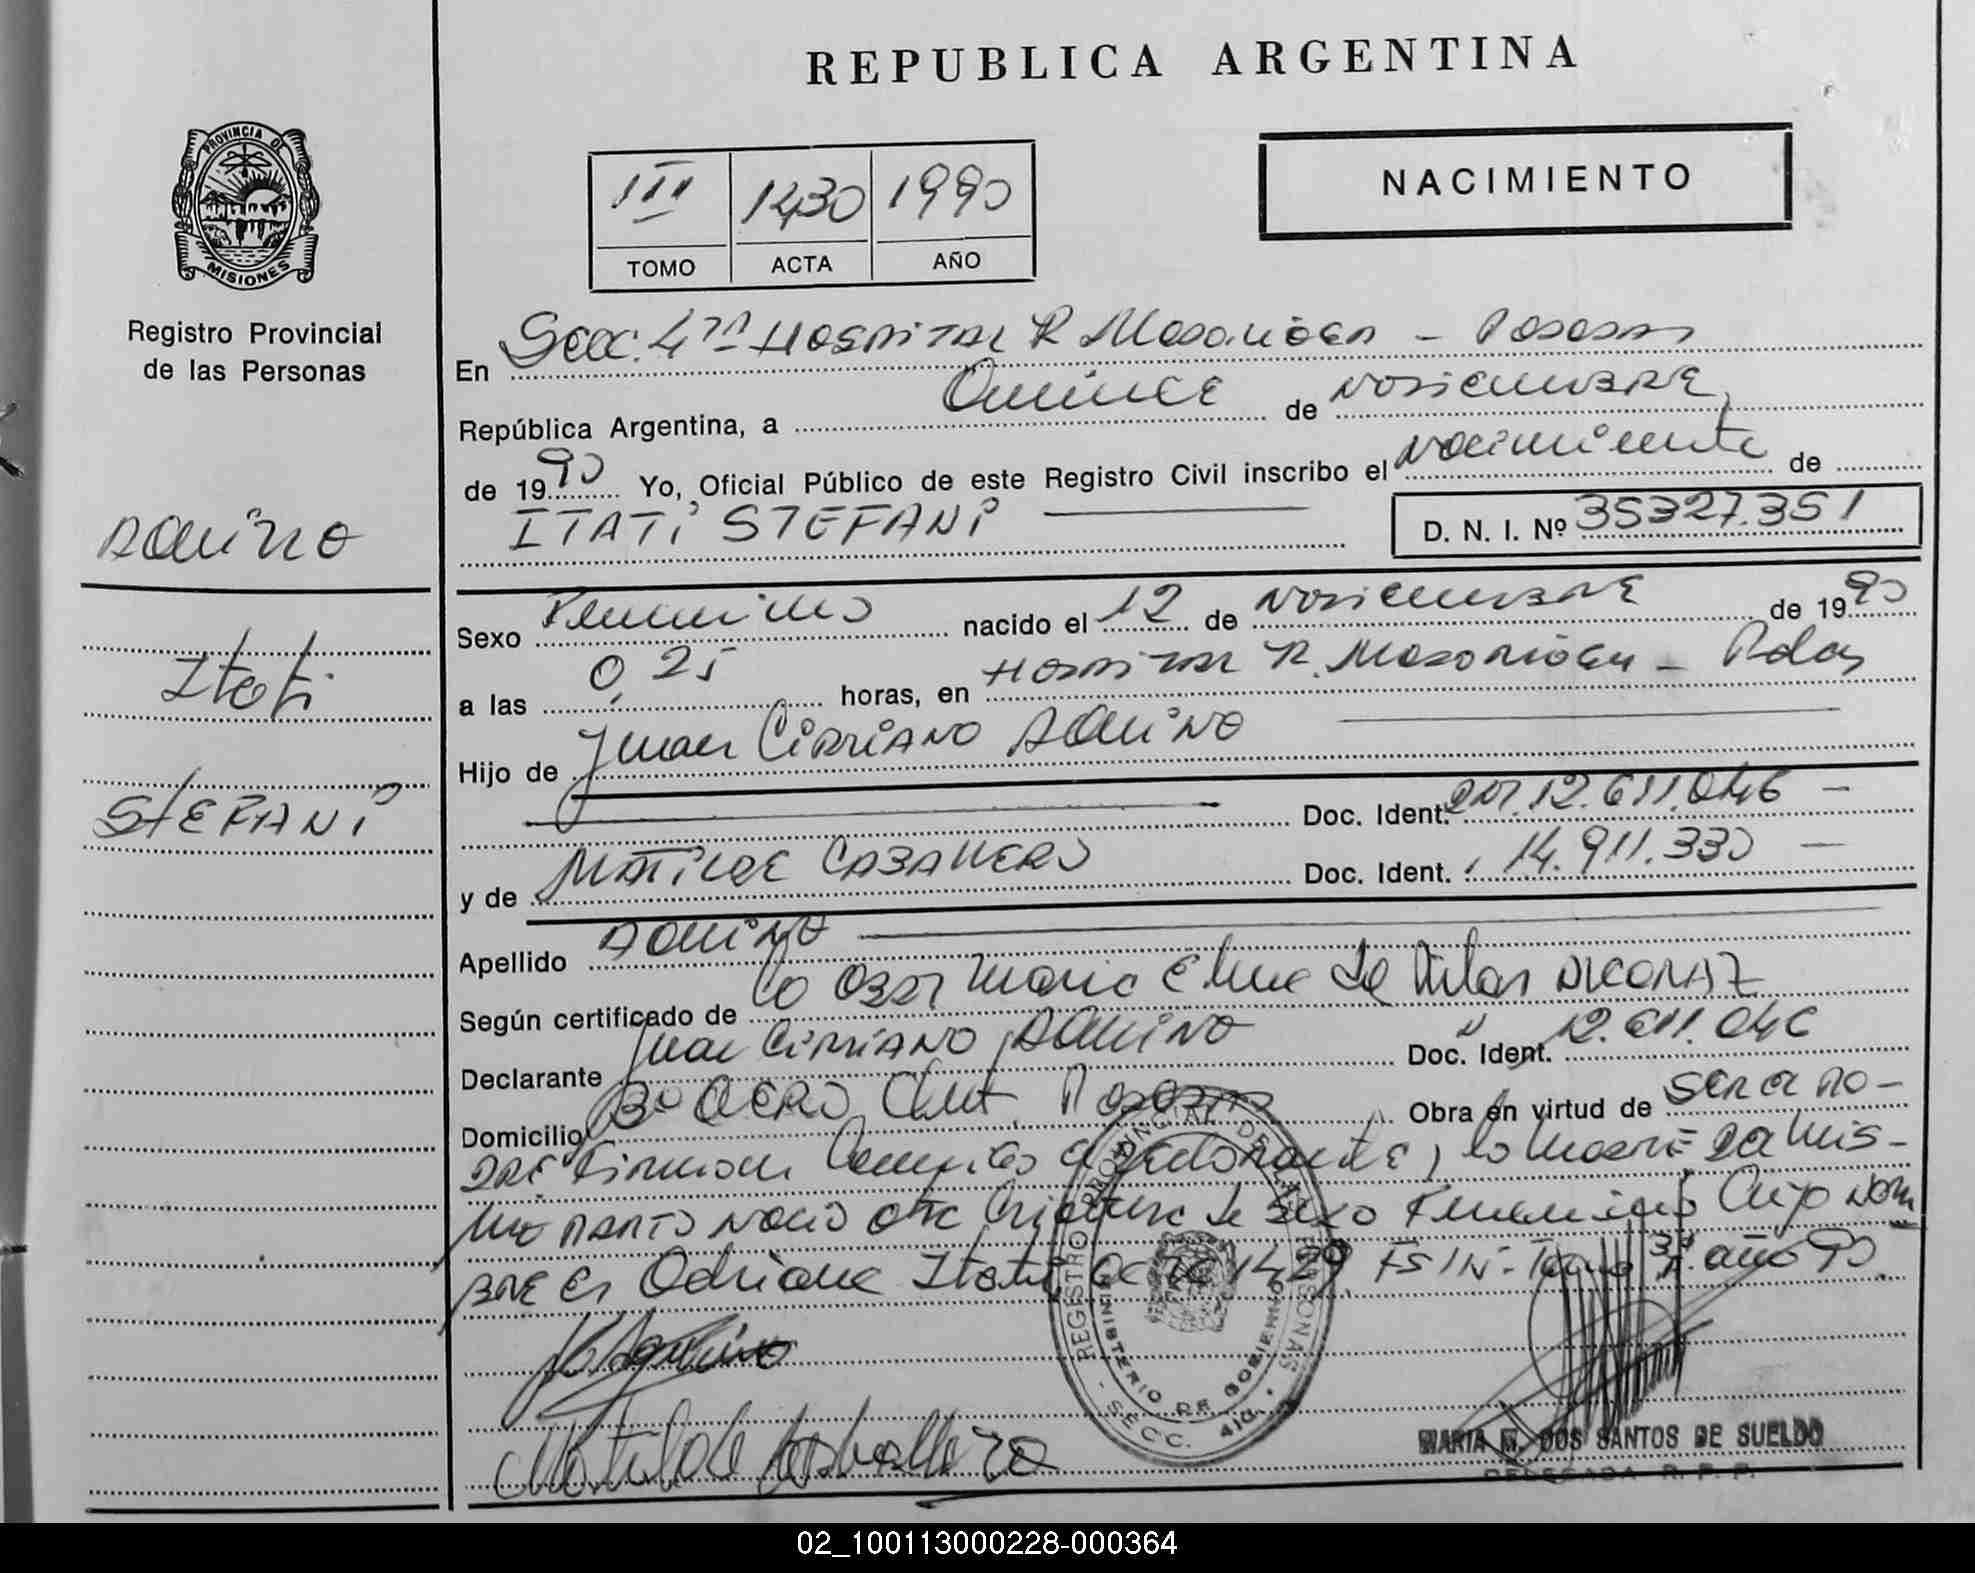 REPUBLICA ARGENTINA
PROVINCIA DE
MISIONES
Registro Provincial
de las Personas
III 1430 1990
TOMO ACTA AÑO
NACIMIENTO
En Secc. 4ta Hospital R Madariaga - Posadas
República Argentina, a Quince de noviembre
de 1990 Yo, Oficial Público de este Registro Civil inscribo el nacimiento de
ITATI STEFANI D. N. I. Nº 35327.351
AQUINO
Itati
STEFANI
Sexo Femenino nacido el 12 de noviembre de 1990
a las 0,25 horas, en Hospital R. Madariaga - Pdas
Hijo de Juan Cipriano Aquino
Doc. Ident. DNI 12.611.046 -
y de MATILDE CABALLERO Doc. Ident. " 14.911.330 -
Apellido AQUINO
Según certificado de la Obst Maria Elena de
Declarante Juan Cipriano AQUINO Doc. Ident. " 12.611.046
Domicilio Bº AERO Club Posadas Obra en virtud de ser el pa-
dre Firman la madre del mis-
mo parto nacio otra criatura de sexo Femenino Cuyo nom
bre es Adriana Itati acta 1429, Tomo 3º año 90
Matilde Caballero
REGISTRO PROVINCIAL DE LAS PERSONAS
MINISTERIO DE GOBIERNO
SECC. 4ta.
MARIA M. DOS SANTOS DE SUELDO
DELEGADA R. P. P.
02_100113000228-000364